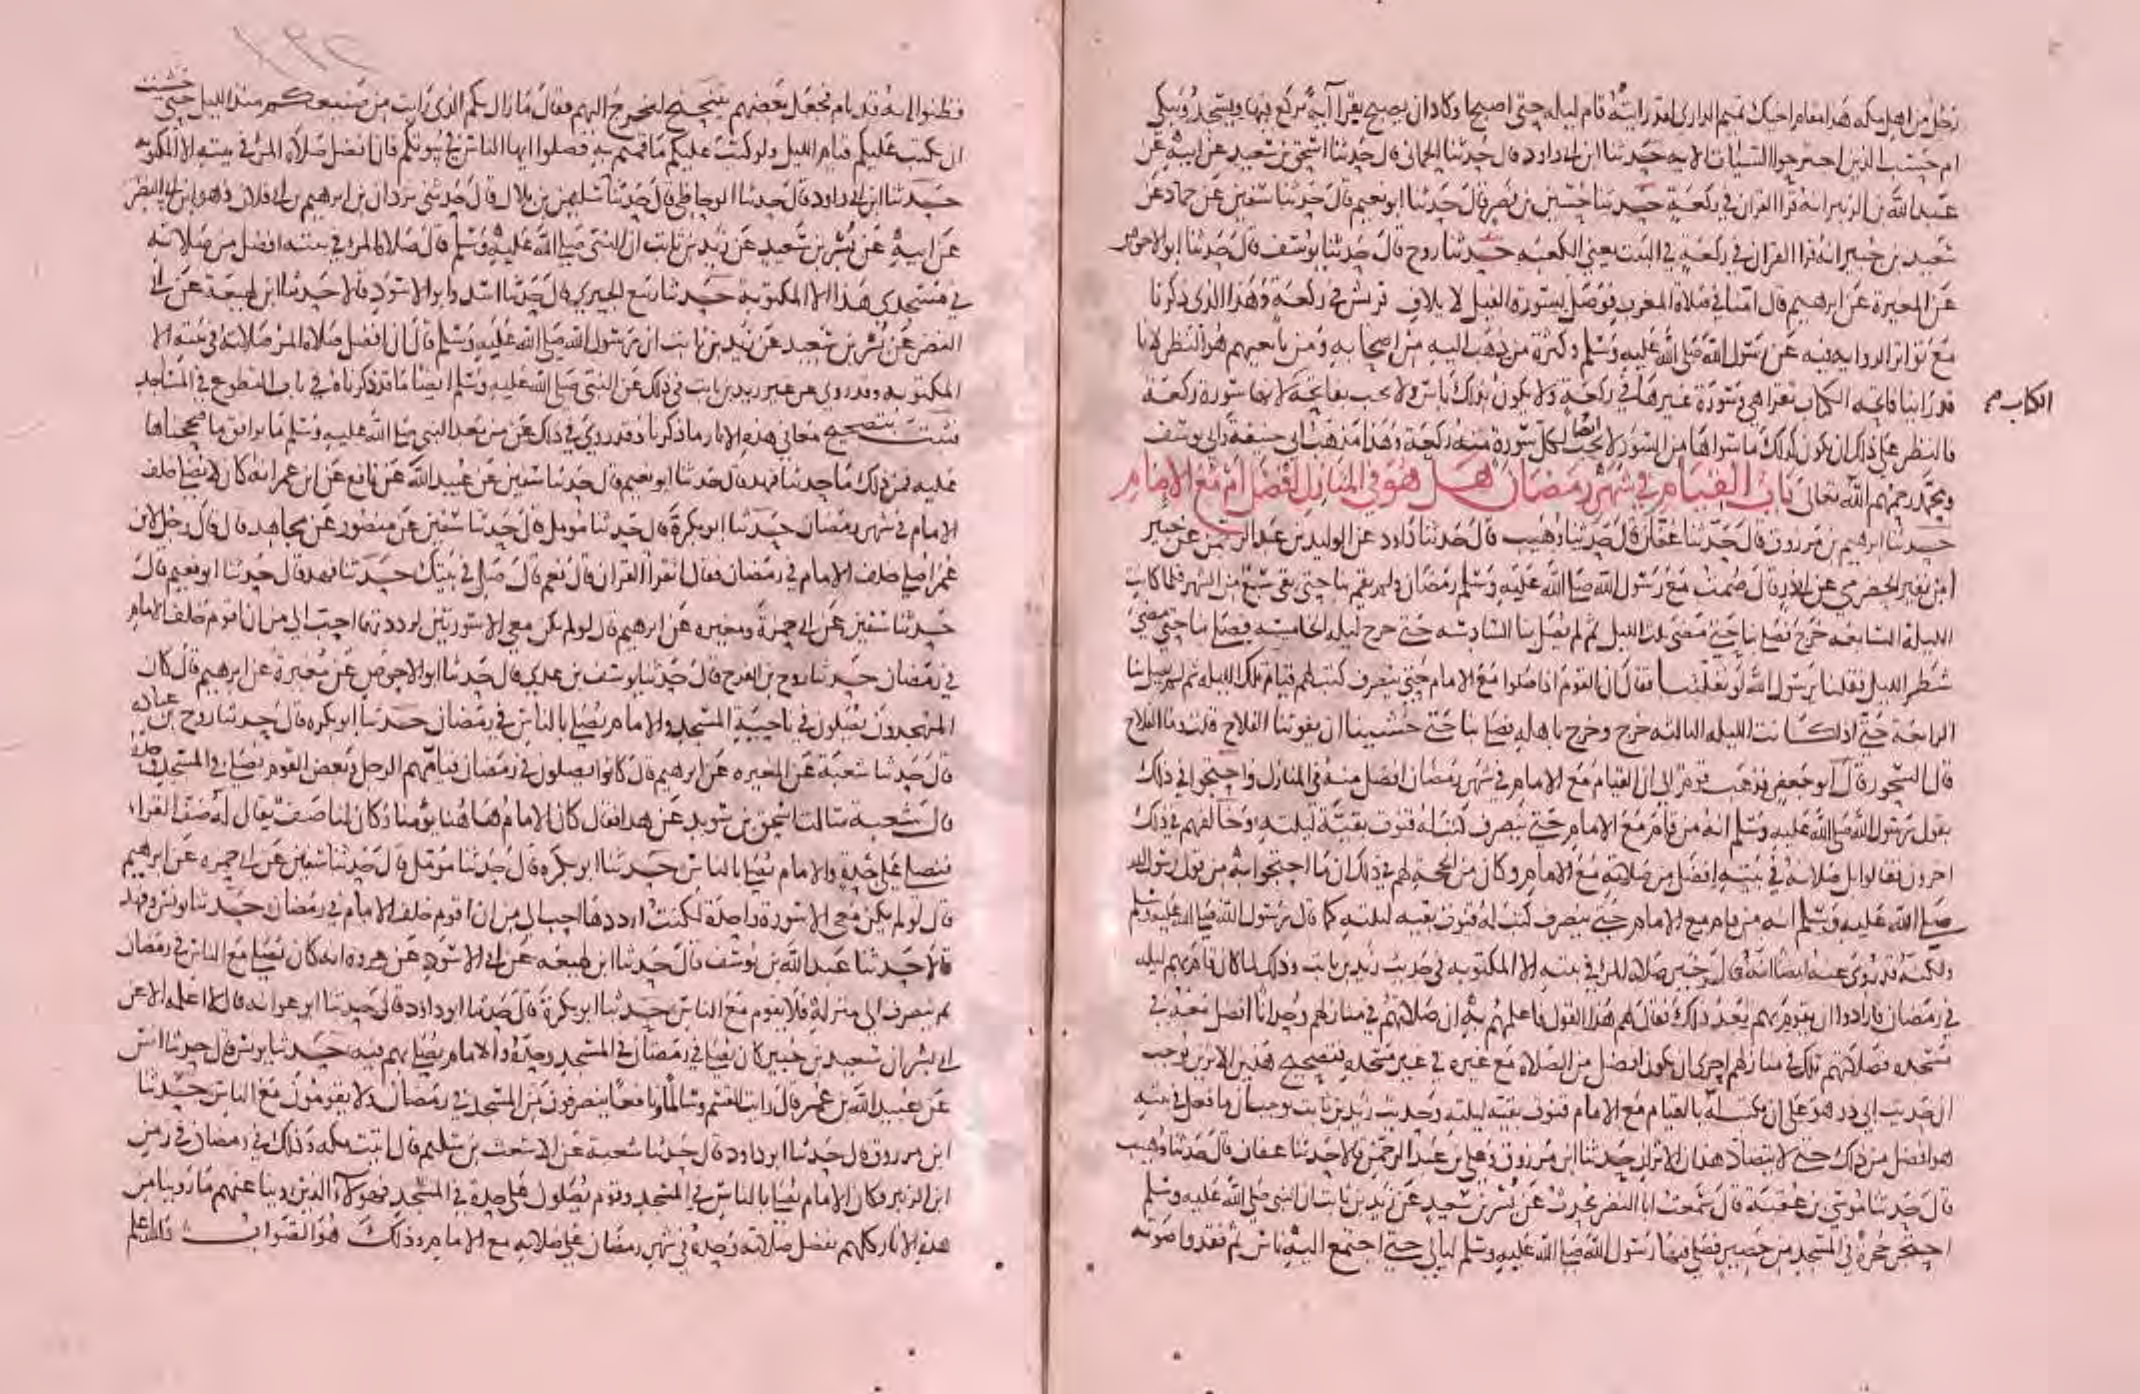 رجل من اهل مكة هذا مقام اخيك تميم الداري لقد رايته قام ليله حتى اصبح او كاد ان يصبح يقرا آية يركع فيها ويسجد ويبكي
ام حسب الذين اجترحوا السيئات الاية حدثنا ابن ابي داود قال حدثنا الحماني قال حدثنا اسحق بن سعيد عن ابيه عن
عبد الله بن الزبير انه قرا القران في ركعة حدثنا حسين بن نصر قال حدثنا ابو نعيم قال حدثنا سفين عن حماد عن
سعيد بن جبير انه قرا القران في ركعة في البيت يعني الكعبه حدثنا روح قال حدثنا يوسف قال حدثنا ابو الاحوص
عن المغيرة عن ابرهيم قال امنا في صلاة المغرب فوصل بسورة الفيل لايلاف قريش في ركعة وهذا الذي ذكرنا
مع تواتر الروايه فيه عن رسول الله صلى الله عليه وسلم وكثرة من ذهب اليه من اصحابه ومن تابعيهم هو النظر لانا
قد راينا فاتحه الكتاب تقرا هي وسورة غيرها في ركعة ولا يكون بذلك باس ولا يجب بفاتحة لانها سورة ركعة
الكتاب
فالنظر على ذلك ان يكون كذلك ما سواها من السور لا يجب ايضا لكل سورة منه ركعة وهذا مذهب ابي حنيفة وابي يوسف
ومحمد رحمهم الله تعالى باب القيام في شهر رمضان هل هو في المنازل افضل ام مع الامام
حدثنا ابرهيم بن مرزوق قال حدثنا عفان قال حدثنا وهيب قال حدثنا داود عن الوليد بن عبد الرحمن عن جبير
ابن نفير الحضرمي عن ابي ذر قال صمت مع رسول الله صلى الله عليه وسلم رمضان ولم يقم بنا حتى بقي سبع من الشهر فلما كانت
الليلة السابعه خرج فصلى بنا حتى مضى ثلث الليل ثم لم يصل بنا السادسه حتى خرج ليله الخامسه فصلى بنا حتى مضى
شطر الليل فقلنا يرسول الله لو نفلتنا فقال ان القوم اذا صلوا مع الامام حتى ينصرف كتب لهم قيام تلك الليله ثم لم يصل بنا
الرابعة حتى اذا كانت الليله الثالثه خرج وخرج باهله فصلى بنا حتى خشينا ان يفوتنا الفلاح قلت وما الفلاح
قال السحور قال ابو جعفر فذهب قوم الى ان القيام مع الامام في شهر رمضان افضل منه في المنازل واحتجوا في ذلك
بقول رسول الله صلى الله عليه وسلم انه من قام مع الامام حتى ينصرف كتب له قنوت بقية ليلته وخالفهم في ذلك
اخرون فقالوا بل صلاته في بيته افضل من صلاته مع الامام وكان من الحجة لهم في ذلك ان ما احتجوا به من قول رسول الله
صلى الله عليه وسلم انه من قام مع الامام حتى ينصرف كتب له قنوت بقيه ليلته كما قال رسول الله صلى الله عليه وسلم
ولكنه قد روي عنه ايضا انه قال خير صلاة المرء في بيته الا المكتوبه في حديث زيد بن ثابت وذلك لما كان قام بهم ليله
في رمضان فارادوا ان يقوم بهم بعد ذلك فقال لهم هذا القول فاعلمهم به ان صلاتهم في منازلهم وحدانا افضل منه في
مسجده فصلاتهم تلك في منازلهم احرى ان يكون افضل من الصلاة مع غيره في غير مسجده فتصحيح هذين الاثرين يوجب
ان حديث ابي ذر هو على ان يكتب له بالقيام مع الامام قنوت بقيه ليلته وحديث زيد بن ثابت يوجب ان ما فعل في بيته
هو افضل من ذلك حتى لا يتضاد هذان الاثران حدثنا ابن مرزوق وعلي بن عبد الرحمن قالا حدثنا عفان قال حدثنا وهيب
قال حدثنا موسى بن عقبة قال سمعت ابا النضر يحدث عن بسر بن سعيد عن زيد بن ثابت ان النبي صلى الله عليه وسلم
احتجر حجرة في المسجد من حصير فصلى فيها رسول الله صلى الله عليه وسلم ليالي حتى اجتمع اليه ناس ثم فقدوا صوته
فظنوا انه قد نام فجعل بعضهم يتنحنح ليخرج اليهم فقال ما زال بكم الذي رايت من صنيعكم منذ الليل حتى خشيت
ان يكتب عليكم قيام الليل ولو كتب عليكم ما قمتم به فصلوا ايها الناس في بيوتكم فان افضل صلاة المرء في بيته الا المكتوبه
حدثنا ابن ابي داود قال حدثنا الوحاظي قال حدثنا سليمن بن بلال قال حدثني بردان بن ابرهيم بن ابي فلان وهو ابن ابي النضر
عن ابيه عن بسر بن سعيد عن زيد بن ثابت ان النبي صلى الله عليه وسلم قال صلاة المرء في بيته افضل من صلاته
في مسجدي هذا الا المكتوبة حدثنا ربيع الجيزي قال حدثنا اسد وابو الاسود قالا حدثنا ابن لهيعة عن ابي
النضر عن بسر بن سعيد عن زيد بن ثابت ان رسول الله صلى الله عليه وسلم قال ان افضل صلاة المرء صلاته في بيته الا
المكتوبه وقد روي عن غير زيد بن ثابت في ذلك عن النبي صلى الله عليه وسلم ايضا ما قد ذكرناه في باب التطوع في المساجد
فثبت بتصحيح معاني هذه الاثار ما ذكرنا وقد روي في ذلك عن من بعد النبي صلى الله عليه وسلم ما يوافق ما صححناها
عليه فمن ذلك ما حدثنا فهد قال حدثنا ابو نعيم قال حدثنا سفين عن عبيد الله عن نافع عن ابن عمر انه كان لا يصلي خلف
الامام في شهر رمضان حدثنا ابو بكرة قال حدثنا مومل قال حدثنا سفين عن منصور عن مجاهد قال قال رجل لابن
عمر اصلي خلف الامام في رمضان فقال اتقرا القران قال نعم قال صل في بيتك حدثنا فهد قال حدثنا ابو نعيم قال
حدثنا سفين عن ابي حمزة ومغيره عن ابرهيم قال لو لم يكن معي الا سورتين لرددتهما احب الي من ان اقوم خلف الامام
في رمضان حدثنا روح بن الفرج قال حدثنا يوسف بن عدي قال حدثنا ابو الاحوص عن مغيرة عن ابرهيم قال كان
المتهجدون يصلون في ناحية المسجد والامام يصلي بالناس في رمضان حدثنا ابو بكره قال حدثنا روح بن عباده
قال حدثنا شعبة عن المغيره عن ابرهيم قال كانوا يصلون في رمضان فيامهم الرجل وبعض القوم يصلي في المسجد وحده
قال شعبة سالت اسحق بن سويد عن هذا فقال كان الامام هاهنا يؤمنا وكان لنا صف يقال له صف القراء
فنصلي على حدة والامام يصلي بالناس حدثنا ابو بكره قال حدثنا مؤمل قال حدثنا سفين عن ابي حمزه عن ابرهيم
قال لو لم يكن معي الا سورة واحدة لكنت ارددها احب الي من ان اقوم خلف الامام في رمضان حدثنا يونس وفهد
قالا حدثنا عبد الله بن يوسف قال حدثنا ابن لهيعه عن ابي الاسود عن عروه انه كان يصلي مع الناس في رمضان
ثم ينصرف الى منزله فلا يقوم مع الناس حدثنا ابو بكرة قال حدثنا ابو داود قال حدثنا ابو عوانه قال لا اعلمه الا عن
ابي بشر ان سعيد بن جبير كان يصلي في رمضان في المسجد وحده والامام يصلي بهم فيه حدثنا يونس قال حدثنا انس
عن عبيد الله بن عمر قال رايت القسم وسالما ونافعا ينصرفون من المسجد في رمضان ولا يقومون مع الناس حدثنا
ابن مرزوق قال حدثنا ابو داود قال حدثنا شعبة عن الاشعث بن سليم قال اتيت مكه وذلك في رمضان في زمن
ابن الزبير وكان الامام يصلي بالناس في المسجد وقوم يصلون على حدة في المسجد فهولاء الذين روينا عنهم ما روينا من
هذه الاثار كلهم يفضل صلاته وحده في شهر رمضان على صلاته مع الامام وذلك هو الصواب والله اعلم